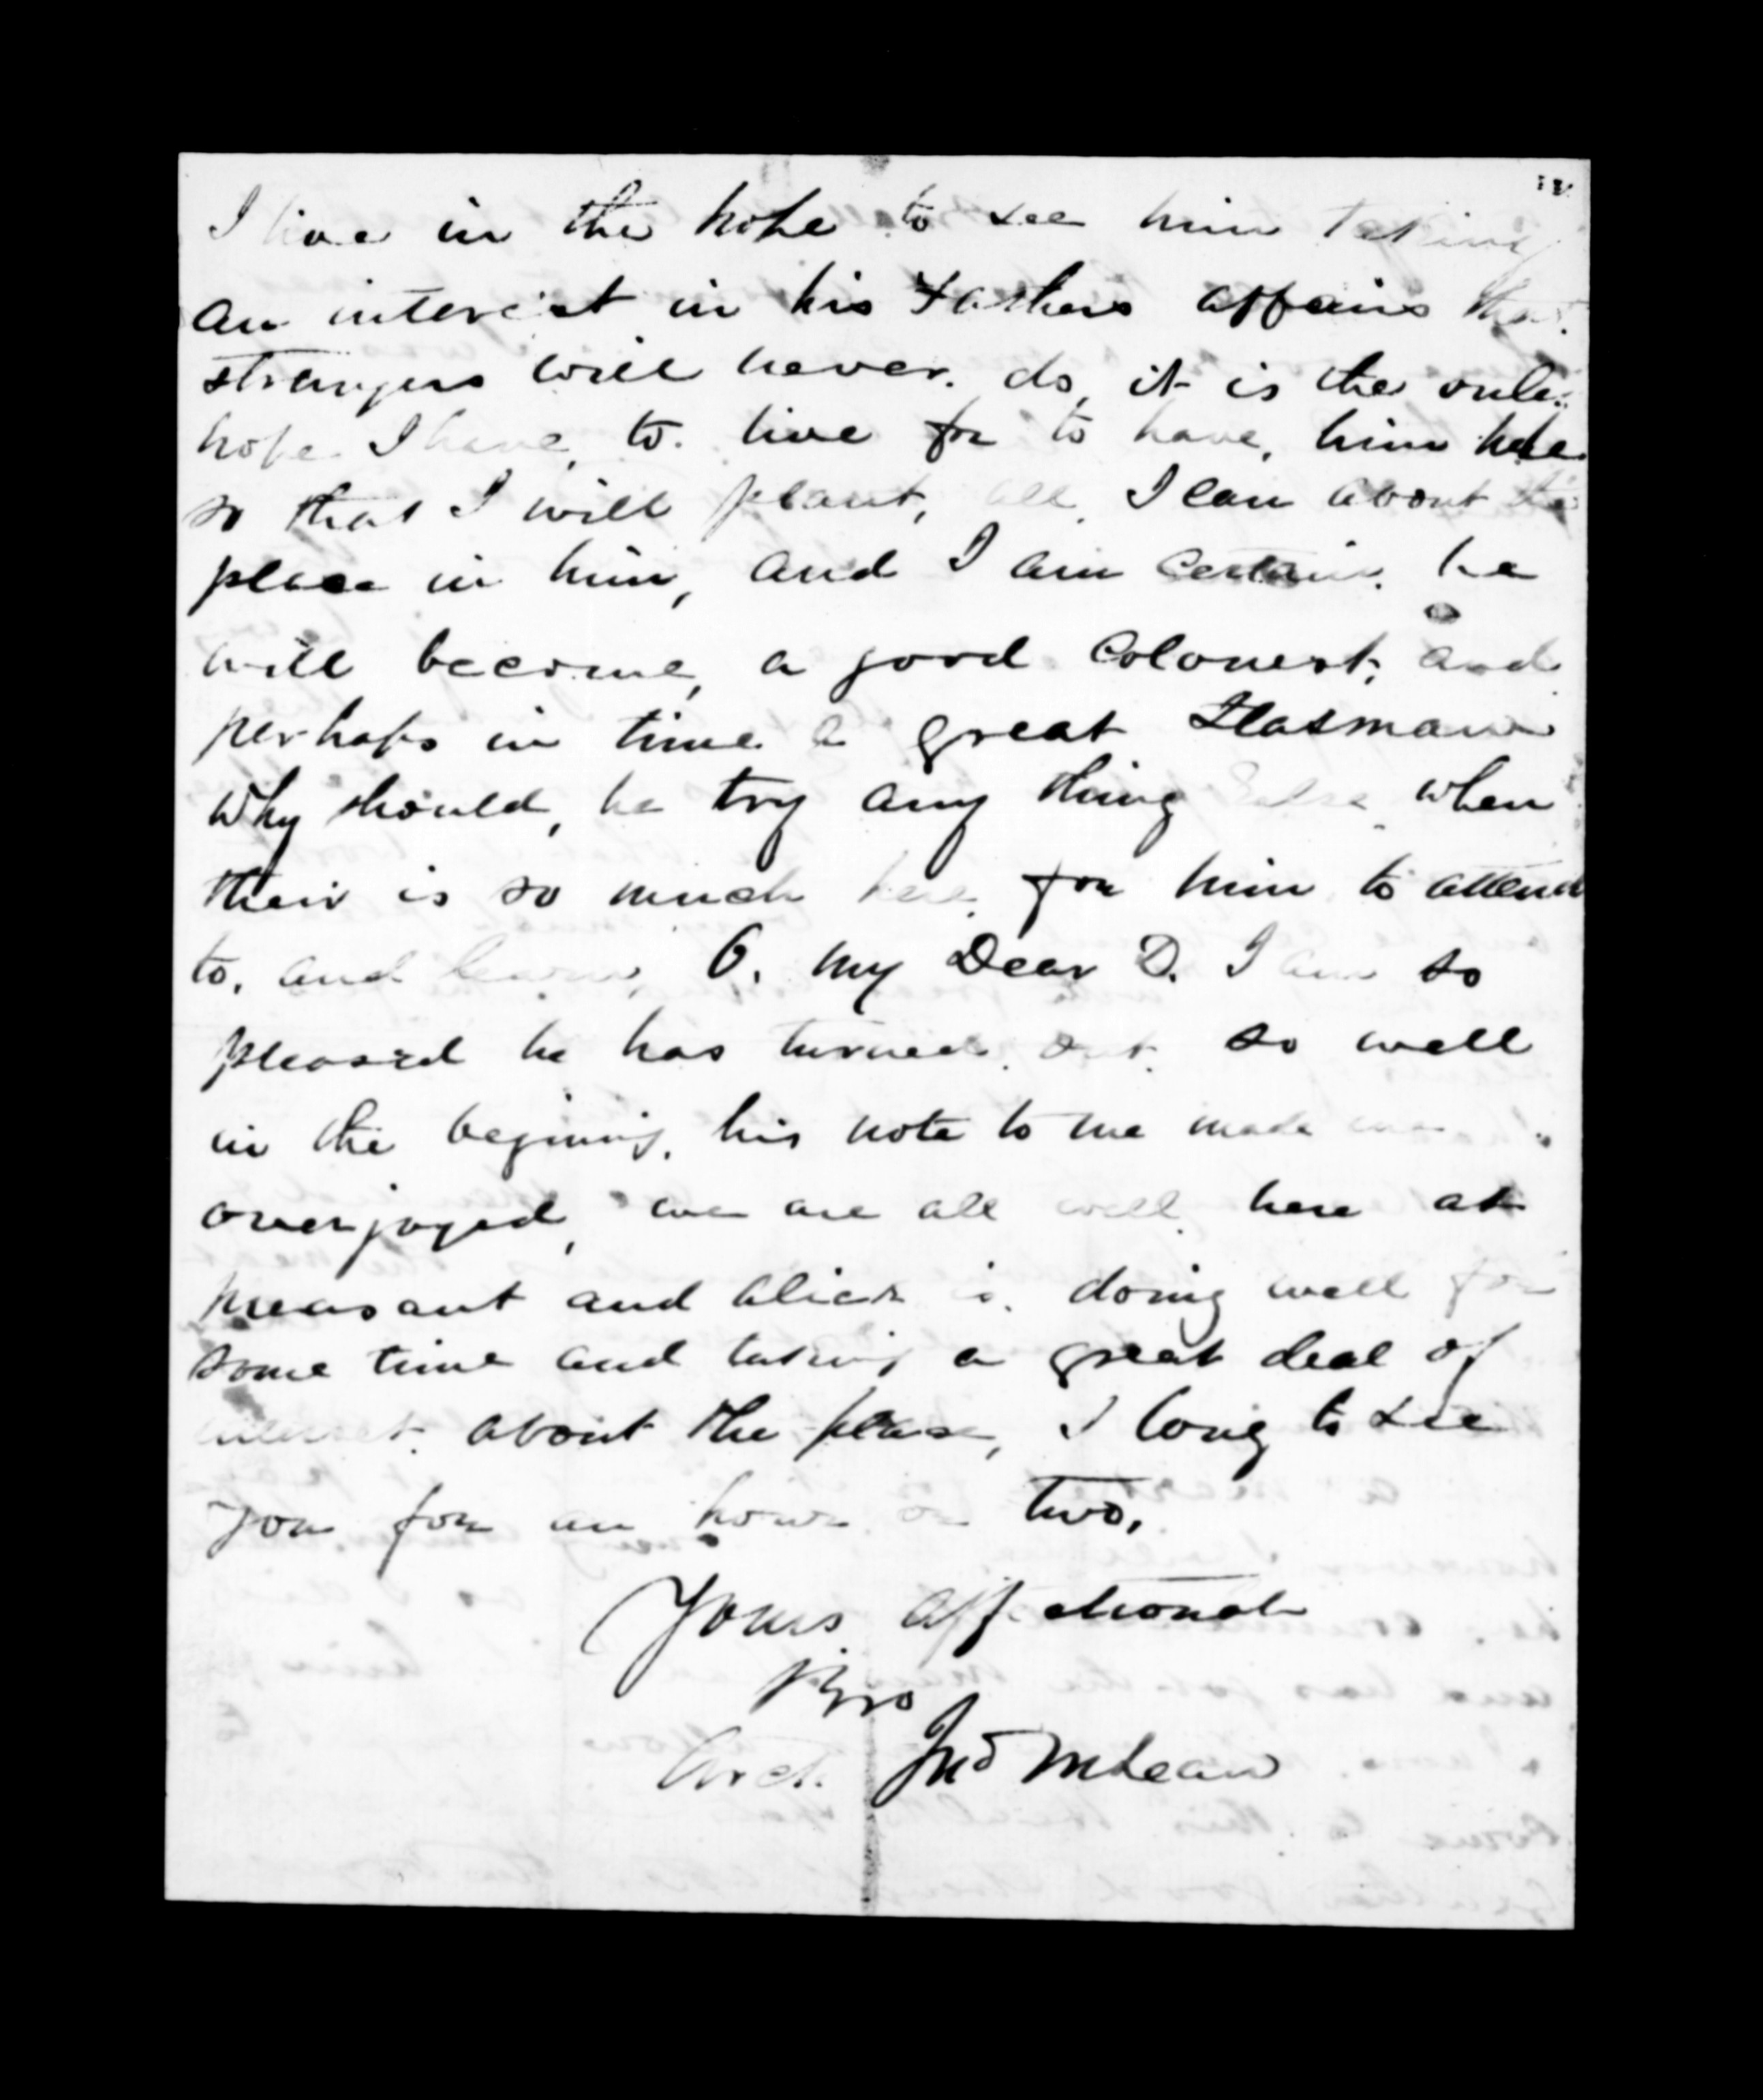 I live in the hope to see him taking
an interest in his Fathers affairs that
strangers will never. do, it is the only
hope I have, to. live for to have, him here
so that I will plant, all, I can about the
place in him, and I am certain. he
will become, a good Colonest; and
perhaps in time a great
Why should, he try any thing Else when
their is so much here, for him to attend
to, and learn, O. my Dear D. I am so
pleased he has turned. out. so well
in the begining, his note to me made me
overjoyed, we are all well here at
presant and Alick is. doing well for
some time and taking a great deal of
interest about the place, I long to see
you for an hour or two,
Yours affectionate
Bro
Arch. Jno McLean